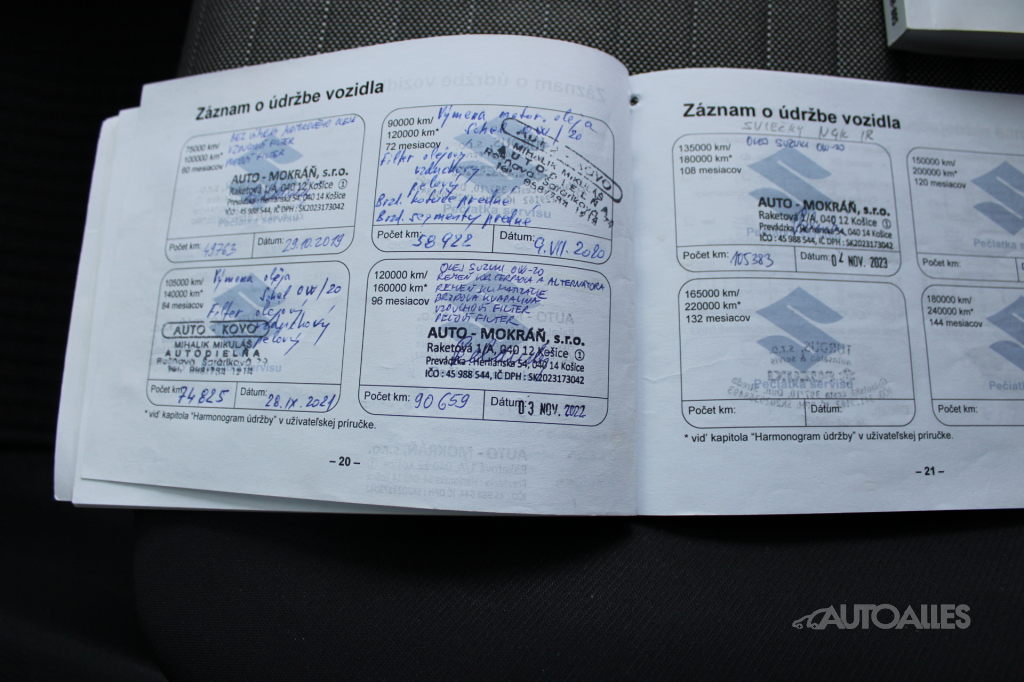 Záznam o údržbe vozidla
75000 km/
100000 km*
60 mesiacov
BEZ VÝMENY MOTOROVÉHO OLEJA
FILTER
PEĽOVÝ FILTER
AUTO - MOKRÁŇ, s.r.o.
Raketová 1/A, 040 12 Košice ①
Prevádzka: Herlianska 54, 040 14 Košice
IČO : 45 988 544, IČ DPH : SK2023173042
Počet km: 49763
Dátum: 29.10.2019
90000 km/
120000 km*
72 mesiacov
Výmena motor. oleja
Schel 0W/20
Filter olejový
vzduchový
peľový
Brzd. kotúče predné
Brzd. segmenty predné
AUTO - KOVO
MIHALIK MIKULÁŠ
AUTODIELŇA
Počet km: 58922
Dátum: 9.VII.2020
105000 km/
140000 km*
84 mesiacov
Výmena oleja
Schel 0W/20
Filter olejový
vzduchový
peľový
AUTO - KOVO
MIHALIK MIKULÁŠ
AUTODIELŇA
Počet km: 74825
Dátum: 28.IX.2021
120000 km/
160000 km*
96 mesiacov
OLEJ SUZUKI 0W-20
REMEŇ A ALTERNÁTORA
REMEŇ KLIMATIZÁCIE
BRZDOVÁ KVAPALINA
VZDUCHOVÝ FILTER
PEĽOVÝ FILTER
AUTO - MOKRÁŇ, s.r.o.
Raketová 1/A, 040 12 Košice ①
Prevádzka : Herlianska 54, 040 14 Košice
IČO : 45 988 544, IČ DPH : SK2023173042
Počet km: 90659
Dátum: 03 NOV. 2022
* viď kapitola "Harmonogram údržby" v užívateľskej príručke.
– 20 –
Záznam o údržbe vozidla
SVIEČKY NGK IR
135000 km/
180000 km*
108 mesiacov
OLEJ SUZUKI 0W-20
AUTO - MOKRÁŇ, s.r.o.
Raketová 1/A, 040 12 Košice ①
Prevádzka: Herlianska 54, 040 14 Košice
IČO : 45 988 544, IČ DPH : SK2023173042
Počet km: 105383
Dátum: 02 NOV. 2023
150000 km/
200000 km*
120 mesiacov
Pečiatka
165000 km/
220000 km*
132 mesiacov
Pečiatka servisu
Počet km:
Dátum:
180000 km/
240000 km*
144 mesiacov
Pečiatka
Počet km:
* viď kapitola "Harmonogram údržby" v užívateľskej príručke.
– 21 –
AUTOALLES